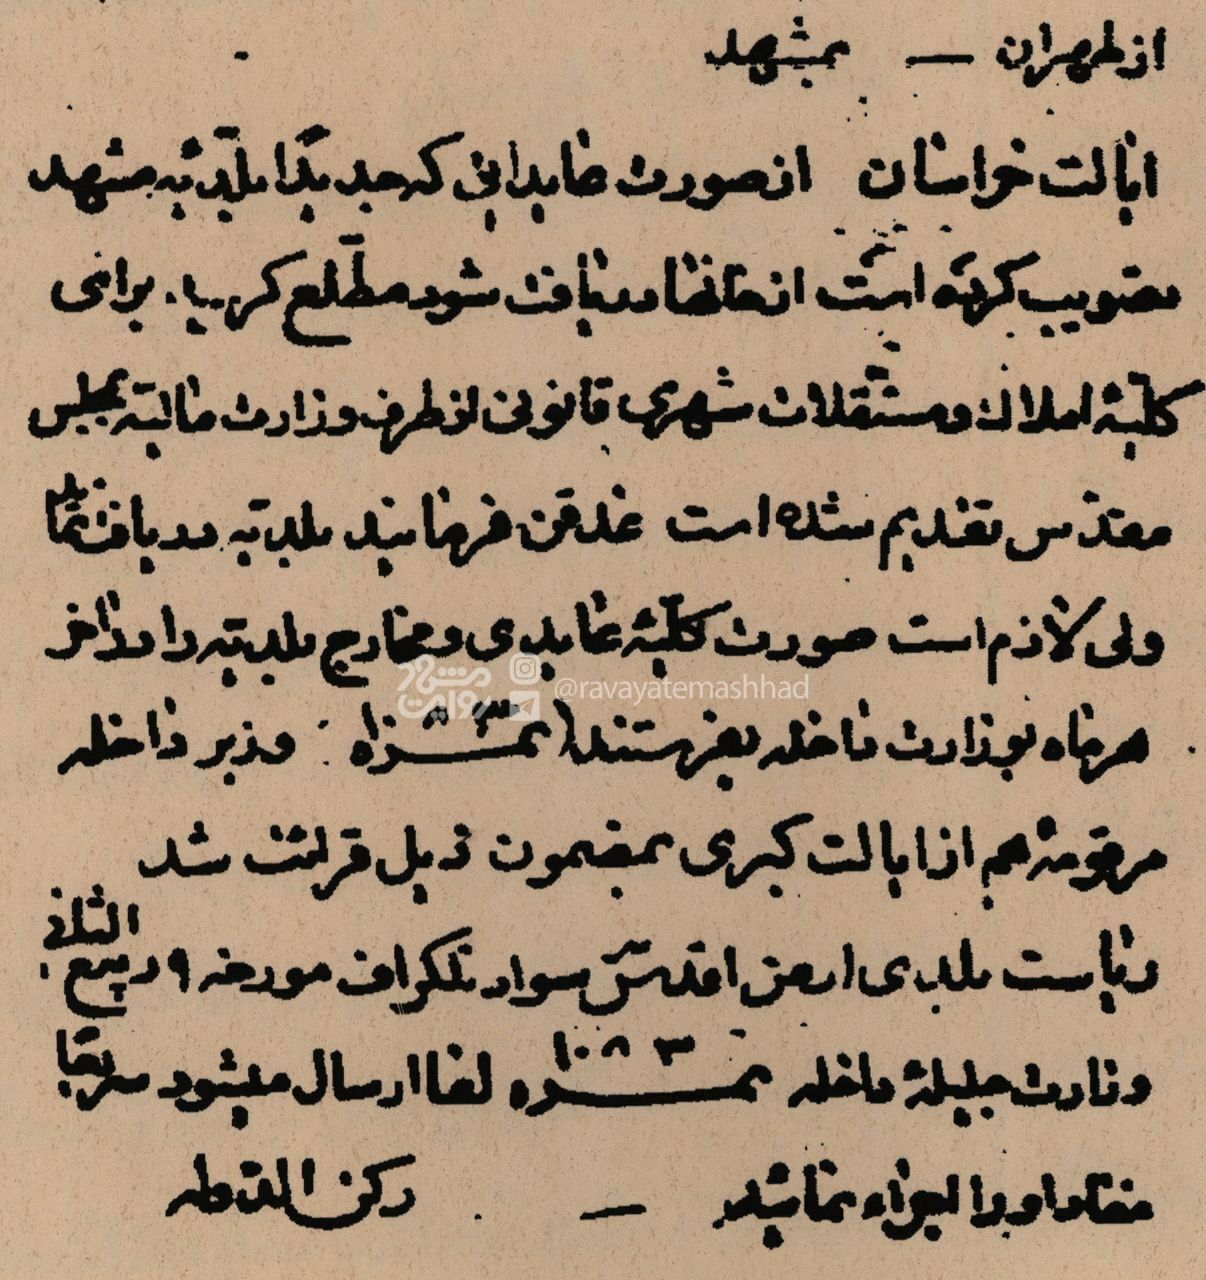 از طهران — بمشهد
ایالت خراسان از صورت عایداتی که جدیداً بلدیه مشهد
تصویب کرده است از مالها دریافت شود مطلع گردید. برای
کلیهٔ املاک و مستقلات شهری قانونی از طرف وزارت مالیه بمجلس
مقدس تقدیم شده است غدقن فرمایند بلدیه دریافت نماید
ولی لازم است صورت کلیهٔ عایدی و مخارج بلدیه را در آخر
هر ماه بوزارت داخله بفرستند نمره وزیر داخله
@ravayatemashhad
روایت مشهد
مرقومهٔ هم از ایالت کبری بمضمون ذیل قرائت شد
ریاست بلدی ارض اقدس سواد تلگراف مورخه ۹ ربیع الثانی
وزارت جلیلهٔ داخله نمره ۱۰۸۳ لفاً ارسال میشود سریعاً
مفاد او را اجراء نمائید — رکن الدوله